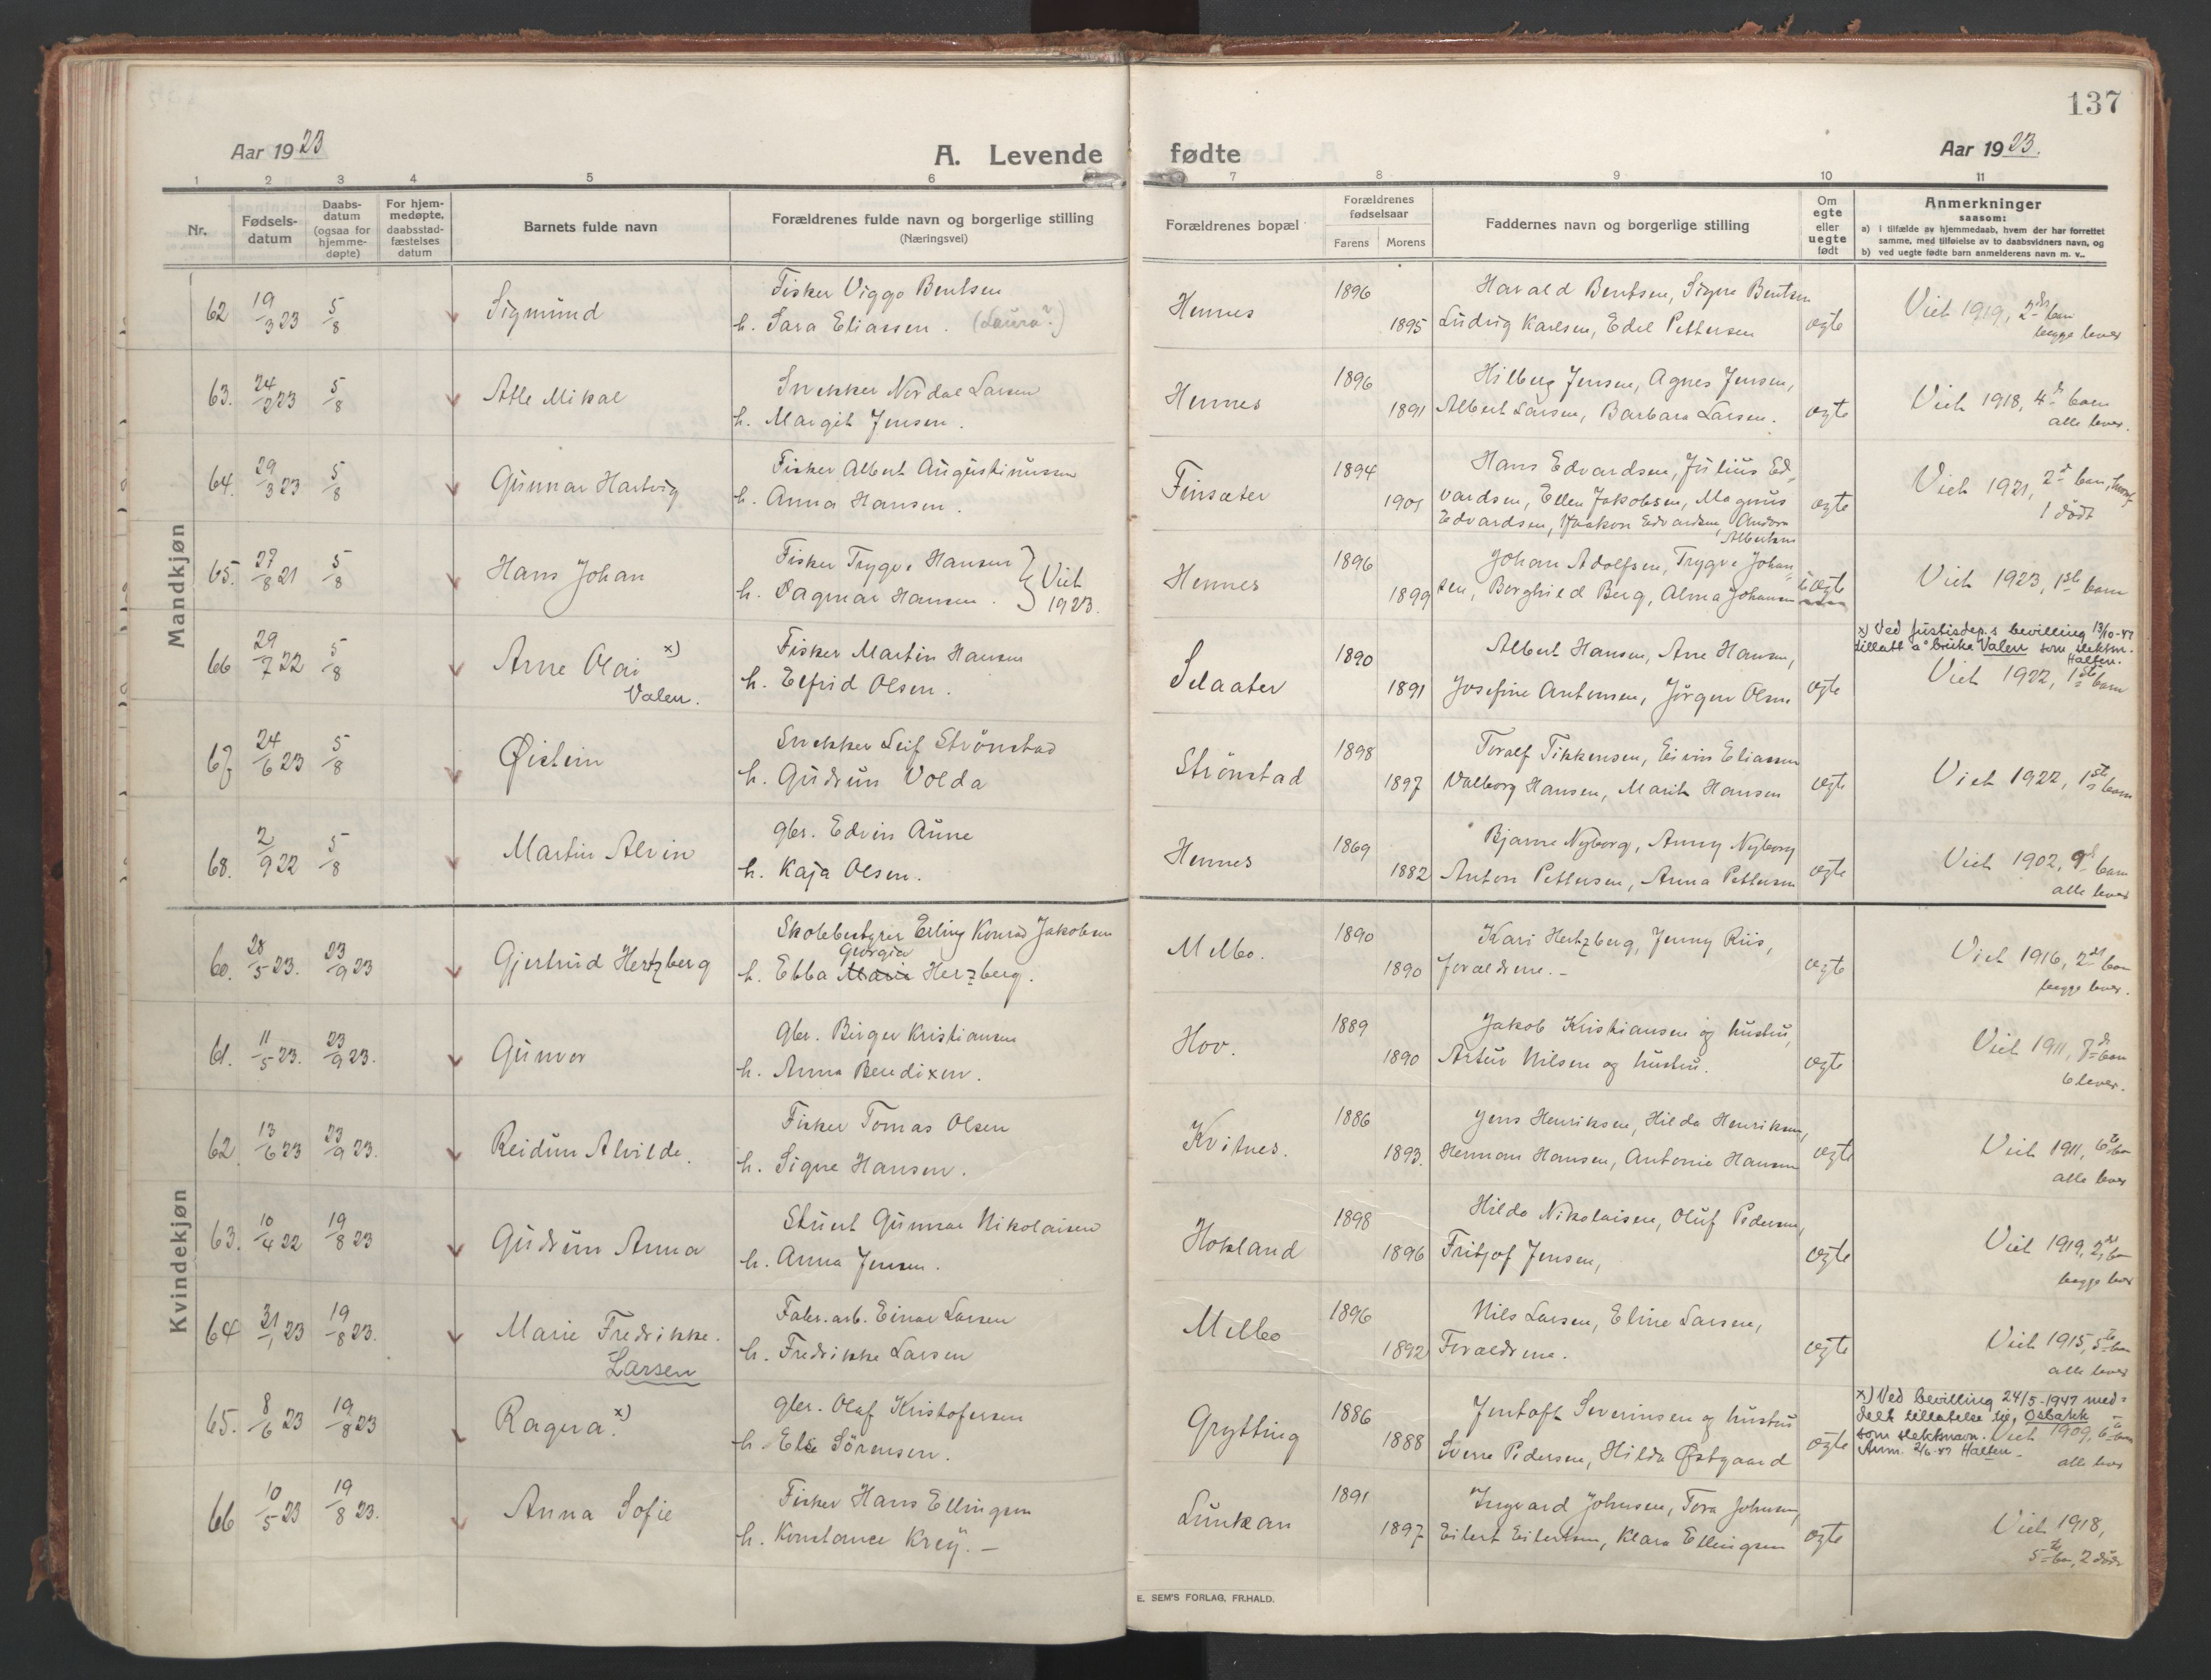 137
Aar 1923
A. Levende fødte
Aar 1923.
1 2 3 4 5 6 7 8 9 10 11
Nr.
Fødsels-
datum
Daabs-
datum
(ogsaa for
hjemme-
døpte)
For hjem-
medøpte,
daabsstad-
fæstelses
datum
Barnets fulde navn
Forældrenes fulde navn og borgerlige stilling
(Næringsvei)
Forældrenes bopæl
Forældrenes
fødselsaar
Farens Morens
Faddernes navn og borgerlige stilling
Om
egte
eller
uegte
født
Anmerkninger
saasom:
a) i tilfælde av hjemmedaab, hvem der har forrettet
samme, med tilføielse av to daabsvidners navn, og
b) ved uegte fødte barn anmelderens navn m. v..
Mandkjøn
62 19/3 23 5/8 Sigmund
Fisker Viggo Bentsen
h. Sara Eliassen. (Laura?)
Hennes 1896 1895
Harald Bentsen, Signe Bentsen
Ludvig Karlsen, Edel Pettersen
egte
Viet 1919, 2det barn
begge lever
63. 24/2 23 5/8 Atle Mikal
Snekker Nordal Larsen
h. Margit Jensen.
Hennes 1896 1891
Hilberg Jensen, Agnes Jensen,
Albert Larsen, Barbara Larsen.
egte
Viet 1918, 4de barn
alle lever.
64. 29/3 23 5/8 Gunnar Hartvig
Fisker Albert Augustinussen
h. Anna Hansen.
Finsæter 1894 1901
Hans Edvardsen, Julius Ed-
vardsen, Ellen Jakobsen, Magnus
Edvardsen, Haakon Edvardsen, Andora
Albertsen
egte
Viet 1921, 2det barn, hvoraf
1 dødt
65. 27/8 21 5/8 Hans Johan
Fisker Trygve Hansen
h. Dagmar Hansen. } Viet
1923.
Hennes 1896 1899
Johan Adolfsen, Trygve Johan-
sen, Borghild Berg, Alma Johansen
uegte
Viet 1923, 1ste barn
66 29/7 22 5/8 Arne Olai x)
Valen.
Fisker Martin Hansen
h. Elfrid Olsen.
Selaater 1890 1891
Albert Hansen, Arne Hansen,
Josefine Antonsen, Jørgen Olsen
egte
x) Ved Justisdep.s bevilling 13/10-47
tillatt å bruke Valen som slektsn.
Halten.
Viet 1922, 1ste barn
67 24/6 23 5/8 Øistein
Snekker Leif Strønstad
h. Gudrun Volda
Strønstad 1898 1897
Toralf Tikkensen, Eivin Eliassen
Valborg Hansen, Marit Hansen
egte
Viet 1922, 1ste barn
68. 2/9 22 5/8 Martin Alvin
gbr. Edvin Aune
h. Kaja Olsen.
Hennes 1869 1882
Bjarne Nyborg, Anny Nyborg
Anton Pettersen, Anna Pettersen
egte
Viet 1902, 9de barn
alle lever
Kvindekjøn
60. 28/5 23. 23/9 23 Gjertrud Hertzberg
Skolebestyrer Erling Konrad Jakobsen
Georgia
h. Ebba Marie Herzberg.
Melbo. 1890 1890
Kari Hertzberg, Jenny Riis,
foraeldrene.-
egte
Viet 1916, 2det barn
begge lever.
61. 11/5 23. 23/9 23. Gunvor
gbr. Birger Kristiansen
h. Anna Bendixen.
Hov. 1889 1890
Jakob Kristiansen og hustru,
Artur Nilsen og hustru.
egte
Viet 1911, 7de barn
6 lever.
62 13/6 23 23/9 23. Reidun Alvilde.
Fisker Tomas Olsen
h. Signe Hansen.
Kvitnes. 1886 1893.
Jens Henriksen, Hilda Henriksen,
Herman Hansen, Antonie Hansen
egte
Viet 1911, 6te barn
alle lever
63. 10/4 22 19/8 23 Gudrun Anna
Stuert Gunnar Nikolaisen
h. Anna Jensen.
Hokland 1898 1896
Hilda Nikolaisen, Oluf Pedersen,
Fritjof Jensen,
egte
Viet 1919, 2det barn
begge lever
64 31/1 23 19/8 23. Marie Fredrikke.
Larsen
Fabr.arb. Einar Larsen
h. Fredrikke Larsen
Melbo 1896 1892
Nils Larsen, Eline Larsen,
Foraeldrene.
egte
Viet 1915, 5te barn
alle lever
65. 8/6 23 19/8 23 Ragna. x)
gbr. Olaf Kristofersen
h. Else Sørensen.
Grytting 1886 1888
Jentoft Severinsen og hustru
Sverre Pedersen, Hilda Østgaard
egte
x) Ved bevilling 24/5-1947 med-
delt tillatelse til, Osbakk
som slektsnavn. Viet 1909, 6te barn
Anm. 2/6-47 Halten.
alle lever
66 10/5 23 19/8 23. Anna Sofie
Fisker Hans Ellingsen
h. Konstance Krey.-
Lunkan 1891 1897
Ingvard Johnsen, Tora Johnsen,
Eilert Eilertsen, Klara Ellingsen
egte
Viet 1918,
5te barn, 2 døde
E. SEM'S FORLAG, FR.HALD.